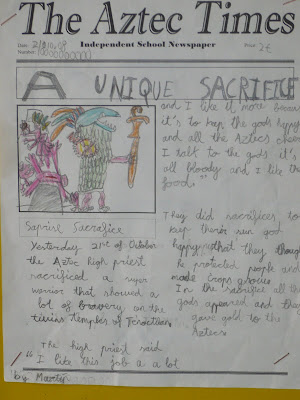 The Aztec Times
Independent School Newspaper
Date:
Number:
Price: 2£
A UNIQUE SACRIFICE
Saprise Sacrafice
Yesterday 21st of October
the Aztec high priest
sacrificed a
worior that showed a
lot of bravery, on the
twins temples of
The high priest said
"I like this job a a lot
by Marty
and I like it more because
it's to keep the gods happy
and all the Aztecs cheer
I talk to the gods it's
all bloody and I like the
food"
They did sacrifices to
keep their sun god
happy that they thought
he protected people and
made crops
In the sacrifice all the
gods appeared and they
gave gold to the
Aztecs